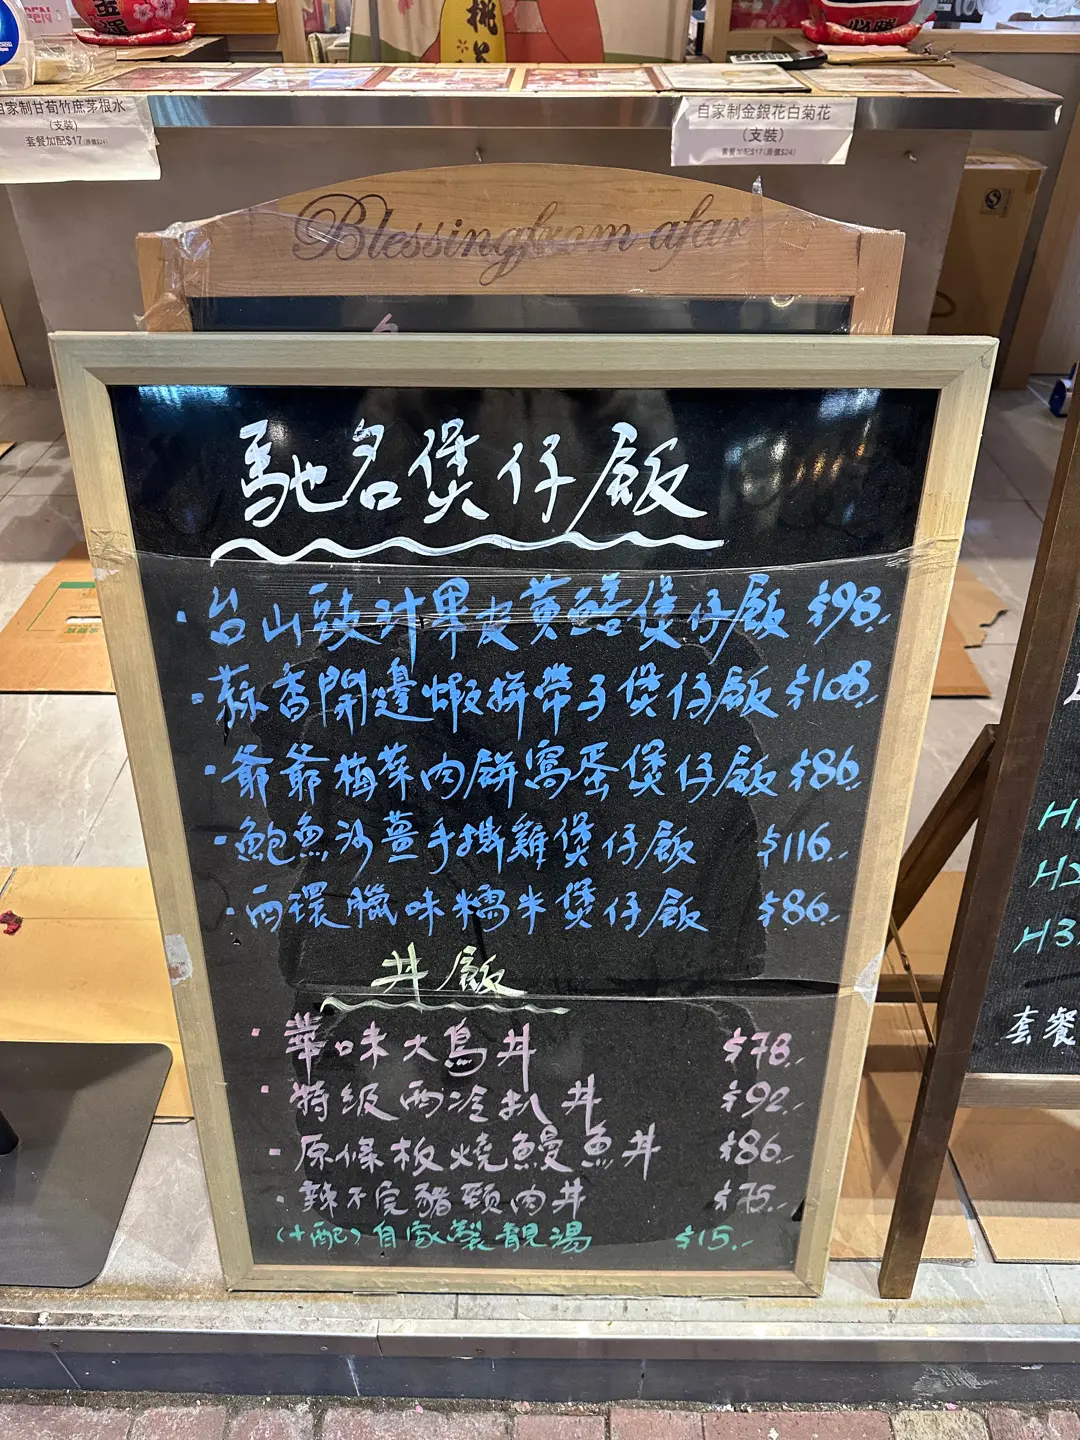 桃
自家制甘荀竹庶茅根水
(支裝)
套餐加配$17(原價$24)
自家制金銀花白菊花
(支裝)
套餐加配$17(原價$24)
Blessing from afar
馳名煲仔飯
·台山豉汁果皮黃鱔煲仔飯 $98.
·蒜香開邊蝦拼帶子煲仔飯 $108.
·爺爺梅菜肉餅窩蛋煲仔飯 $86.
·鮑魚沙薑手撕雞煲仔飯 $116.
·西環臘味糯米煲仔飯 $86.
丼飯
·華味大鳥丼 $78.
·特級西冷扒丼 $92.
·原條板燒鰻魚丼 $86.
·辣不完豬頸肉丼 $75.
(+配)自家製靚湯 $15.
H3
套餐